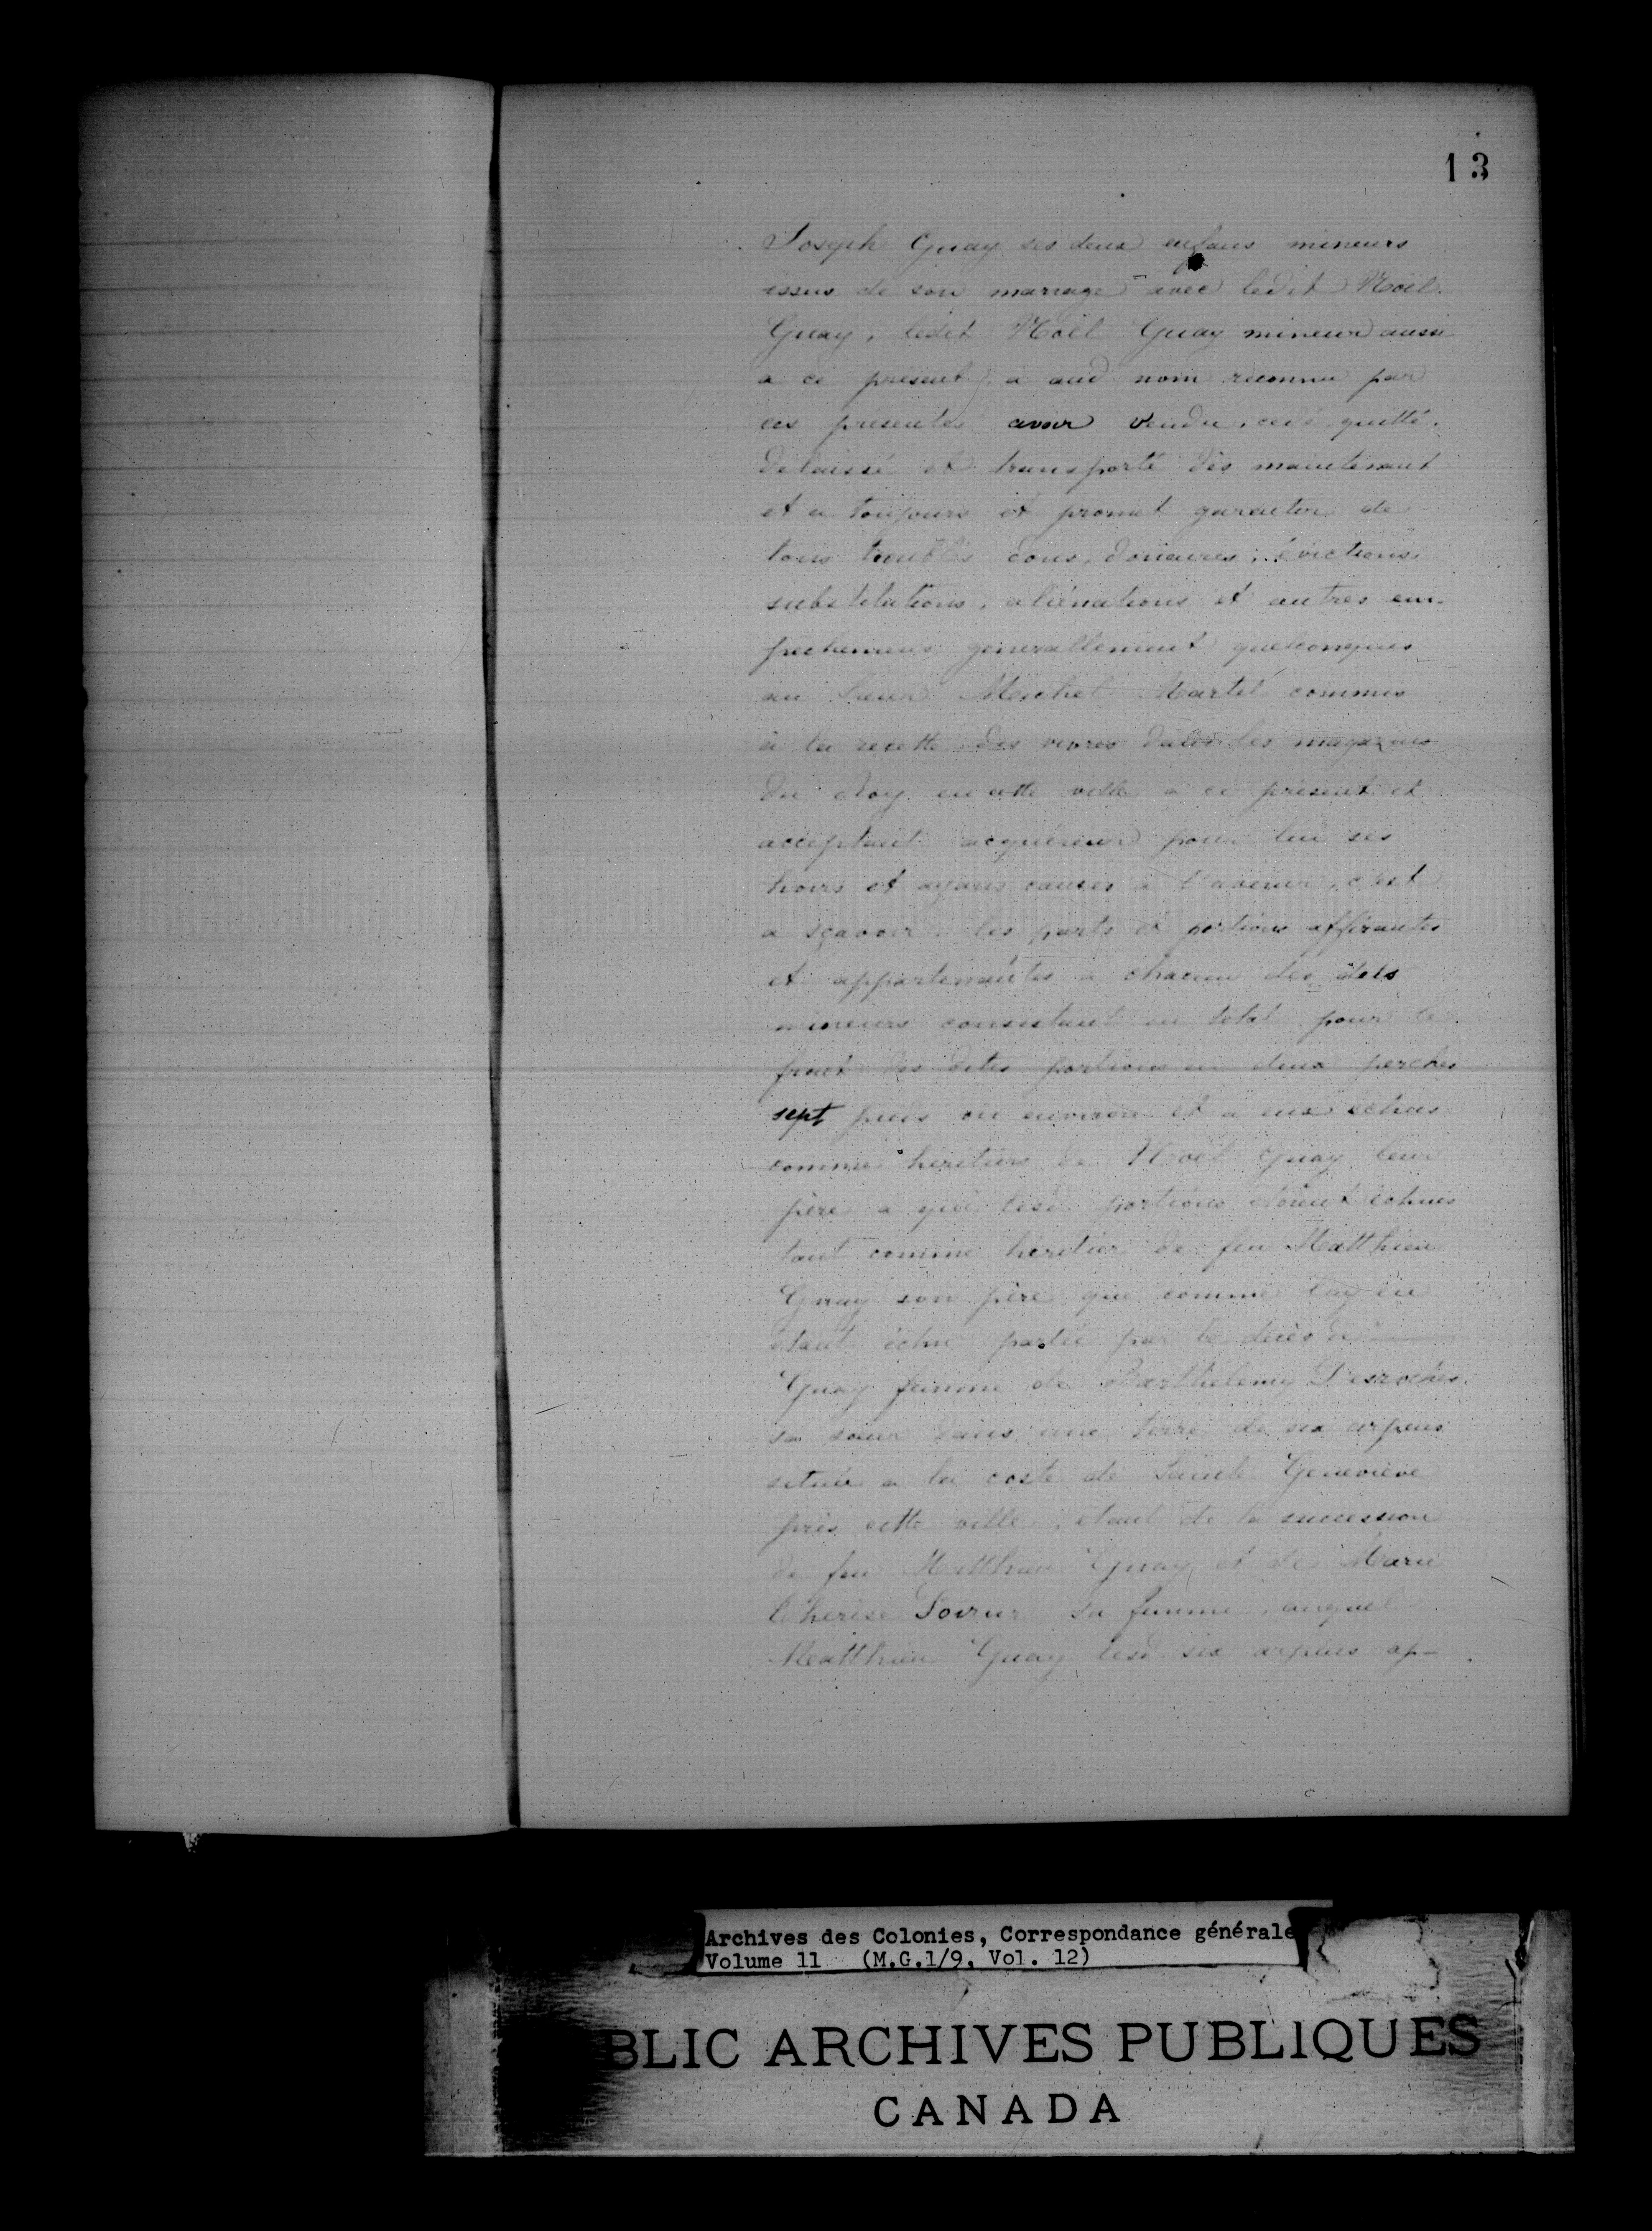 13
Joseph Guay ses deux enfans mineurs
issus de son mariage avec ledit Noël
Guay, ledit Noël Guay mineur aussi
a ce présent) a aud nom reconnu par
ces présentes avoir vendu, cedé, quitté,
delaissé et transporté dès maintenant
et a toujours et promet garantir de
tous troubles dons, doüaires, évictions,
substitutions, aliénations et autres em-
pechemens generallement quelconques
au Sieur Michel Martel commis
à la recette des vivres dans les magazins
du Roy en cette ville a ce présent et
acceptant acquéreur pour lui ses
hoirs et ayans causes a l'avenir, c'est
a sçavoir les parts et portions affirantes
et appartenantes a chacun des dits
mineurs consistant en total pour le
front des dites portions en deux perches
sept pieds ou environ et a eux echus
comme héritiers de Noël Guay leur
père a qui lesd. portions étoient échues
tant comme héritier de feu Matthieu
Guay son père que comme luy en
étant échue partie par le décès de —
Guay femme de Barthelemy Desroches
sa soeur dans une terre de six arpens
située a la coste de Sainte Geneviève
près cette ville, etant de la succession
de feu Matthieu Guay et de Marie
Therise sa femme, auquel
Matthieu Guay lesd. six arpens ap-
Archives des Colonies, Correspondance générale
Volume 11 (M.G.1/9, Vol. 12)
BLIC ARCHIVES PUBLIQUES
CANADA